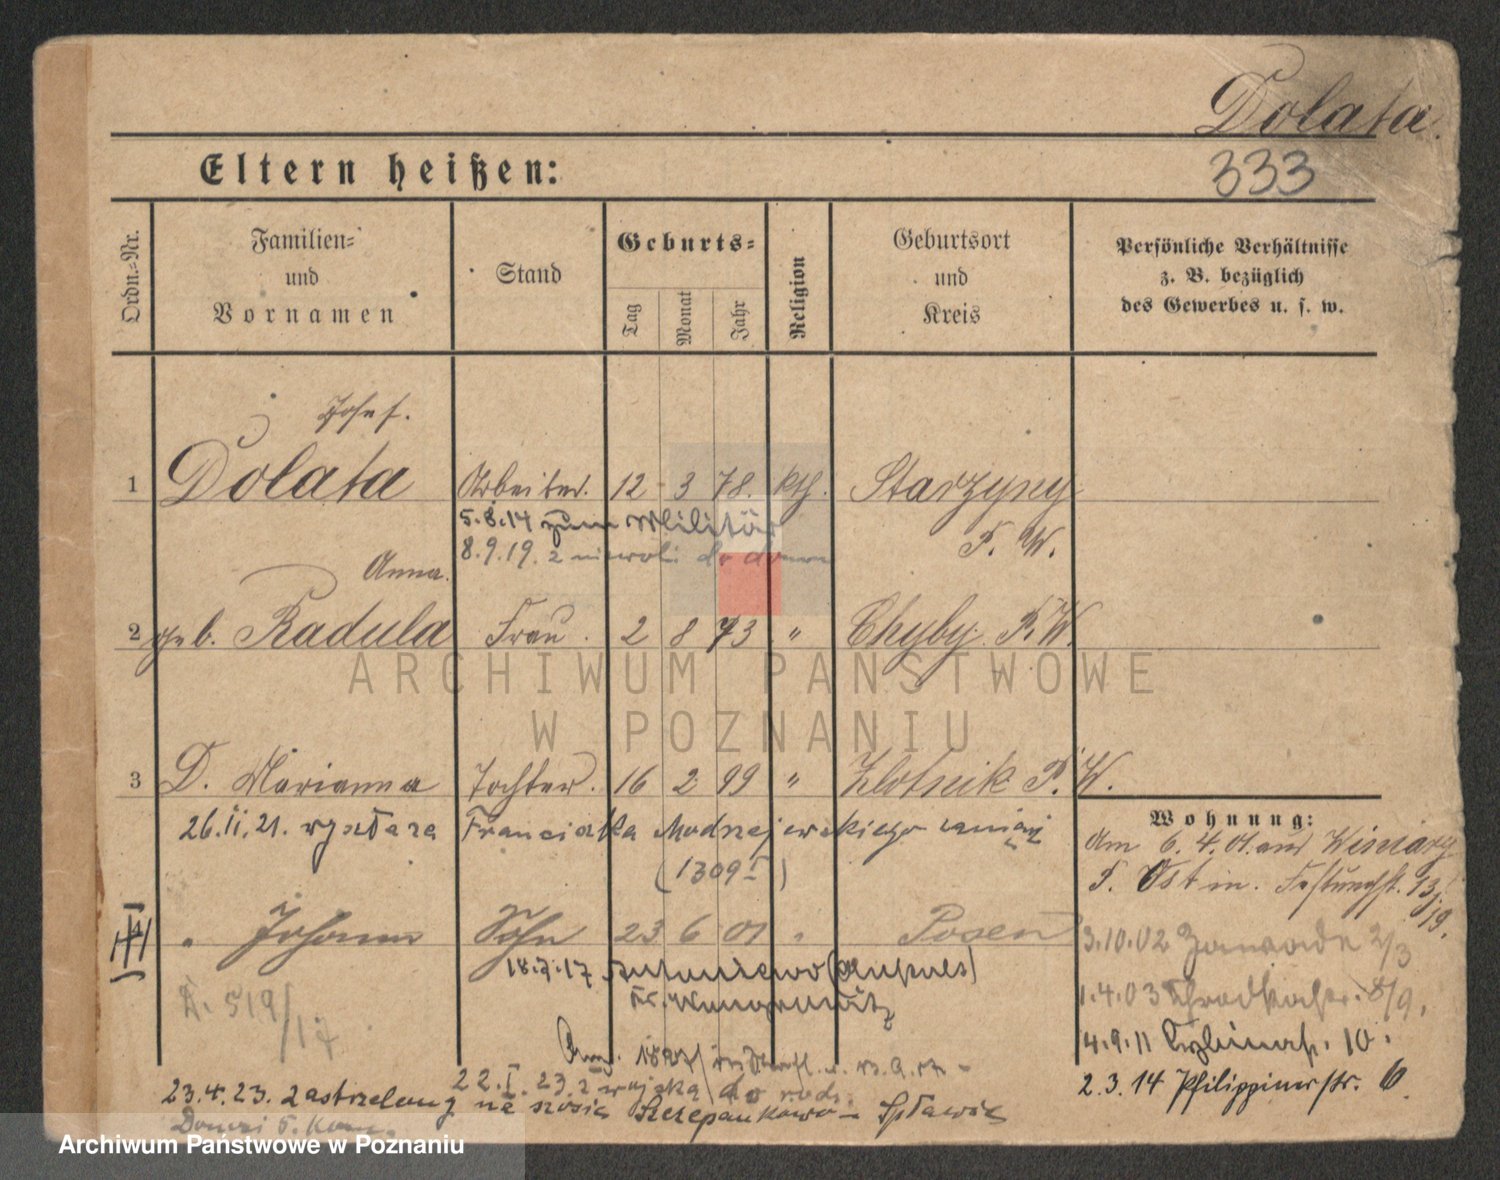 Dolata.
333
Eltern heißen:
Ordn.=Nr.
Familien=
und
Vornamen
Stand
Geburts=
Tag
Monat
Jahr
Religion
Geburtsort
und
Kreis
Persönliche Verhältnisse
z. B. bezüglich
des Gewerbes u. s. w.
Josef.
1 Dolata Arbeiter. 12 3 78. kth. Starzyny
5.8.14 zum Militär P. W.
8.9.19. z niewoli do domu
Anna.
2 geb. Radula Frau. 2 8 73 " Chyby P. W.
ARCHIWUM PAŃSTWOWE
W POZNANIU
3 D. Marianna Tochter. 16 2 99 " Zlotnik P. W.
26.II.21. wyszła za Franciszka Modrzejewskiego
(1309 I)
Wohnung:
Am 6. 4. 01. aus Winiary
P. Ost in. 13/
19.
III " Johann Sohn 23 6 01 " Posen
18.7.17 Antoniewo
Kr. Wongrowitz
519/17
3.10.02 2/3
1.4.03 8/9.
4.9.11 Cybinastr. 10.
2.3.14 Philippinerstr. 6.
22.I.23. z wojska do rodz.
23.4.23. zastrzelony na szosie Szczepankowo – Spławie
Archiwum Państwowe w Poznaniu